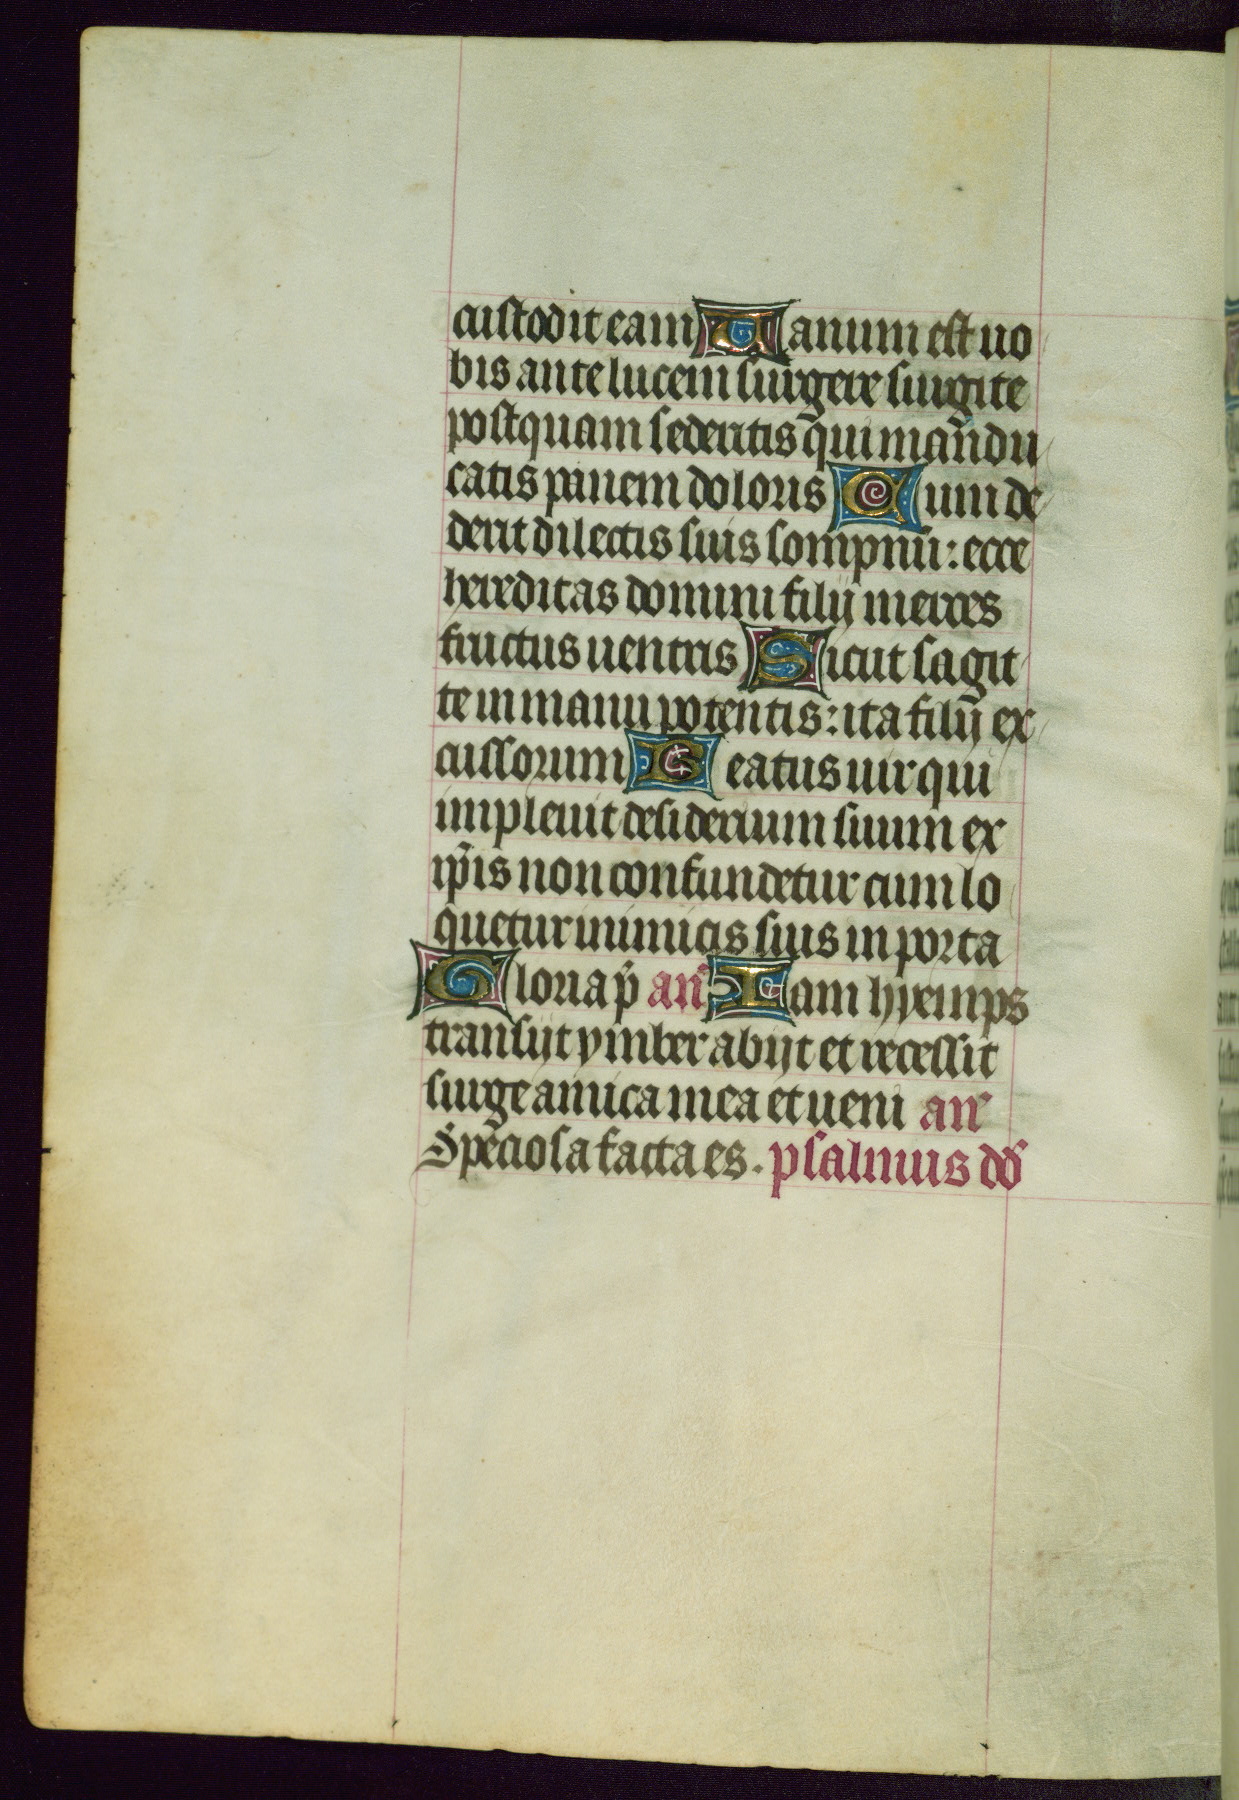 custodit eam Uanum est uo
bis ante lucem surgere surgite
postquam sederitis qui mandu
catis panem doloris Cum de
derit dilectis suis sompnū: ecce
hereditas domini filij merces
fructus uentris Sicut sagit
te in manu potentis: ita filij ex
cussorum Beatus uir qui
impleuit desiderium suum ex
ip̄is non confundetur cum lo
quetur inimicis suis in porta
Gloria p̄ an̄ Iam hyemps
transijt ymber abijt et recessit
surge amica mea et ueni an̄
Speciosa facta es. psalmus dd̄